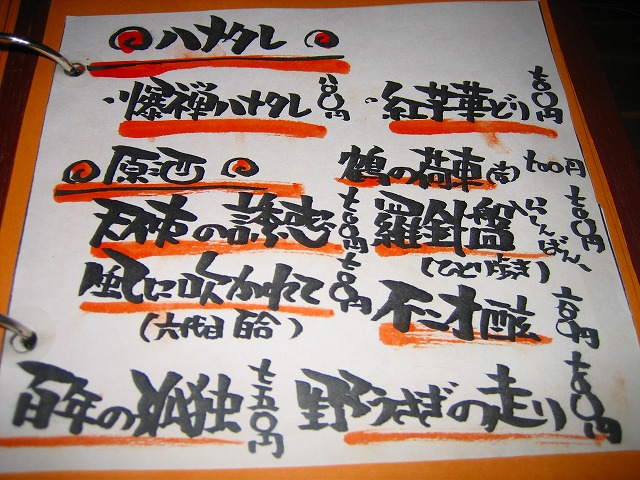 ハナタレ
・爆弾ハナタレ 八〇〇円
・紅芋華どり 七〇〇円
原酒
鶴の荷車(南) 700円
天使の誘惑 七〇〇円
羅針盤 七〇〇円
らしんばん
(ひとり歩き)
風に吹かれて 七〇〇円
(六代目百合)
不二才醅 六〇〇円
百年の孤独 七五〇円
野うさぎの走り 七五〇円